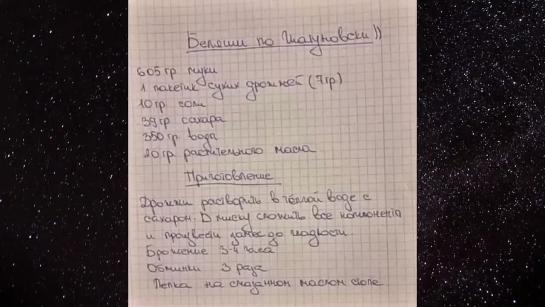 Беляши по Шатуновски))
605гр муки
1 пакетик сухих дрожжей (7гр)
10гр соли
39гр сахара
350гр вода
20гр растительного масла
Приготовление
Дрожжи растворить в тёплой воде с
сахаром. В миску сложить все
и произвести замес до гладкости.
Брожение 3-4 часа
Обминки 3 раза
Лепка на смазанном маслом столе